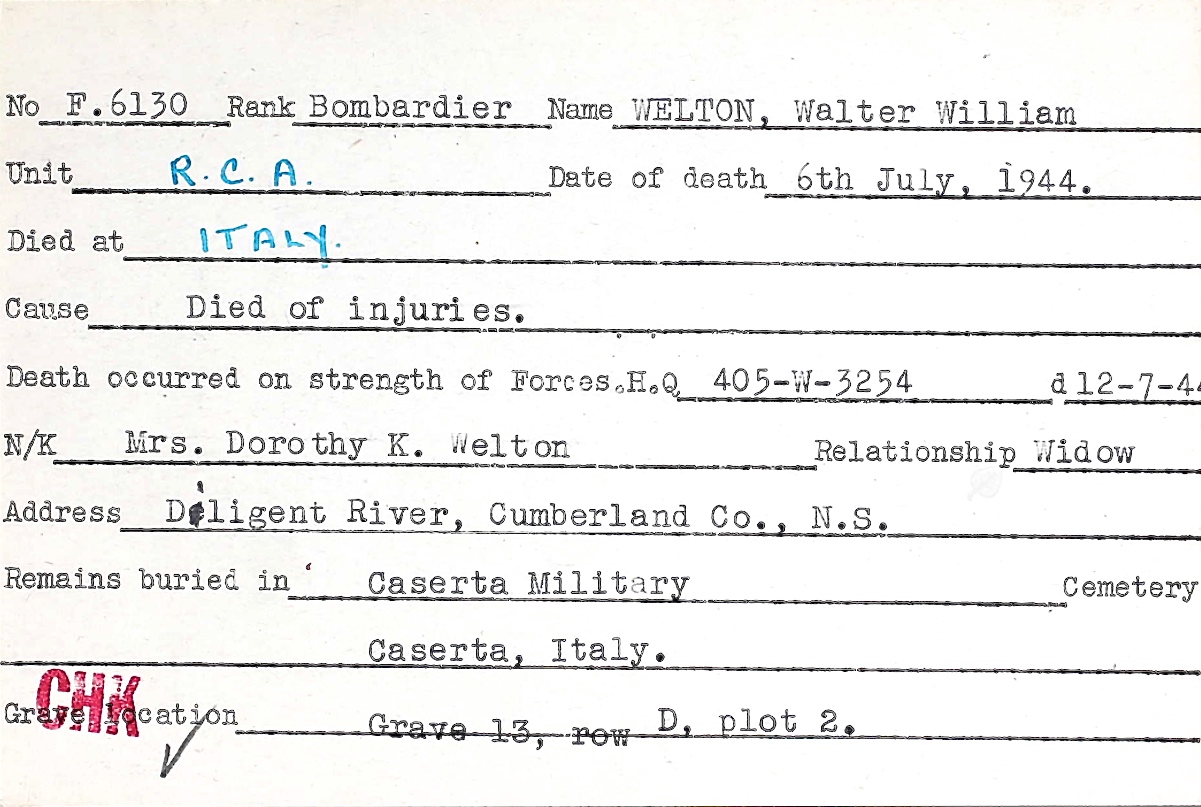 No F.6130 Rank Bombardier Name WELTON, Walter William
Unit R.C.A. Date of death 6th July, 1944.
Died at ITALY.
Cause Died of injuries.
Death occurred on strength of Forces.H.Q 405-W-3254 d 12-7-44
N/K Mrs. Dorothy K. Welton Relationship Widow
Address Diligent River, Cumberland Co., N.S.
Remains buried in Caserta Military Cemetery
Caserta, Italy.
CHK
Grave location Grave 13, row D, plot 2.